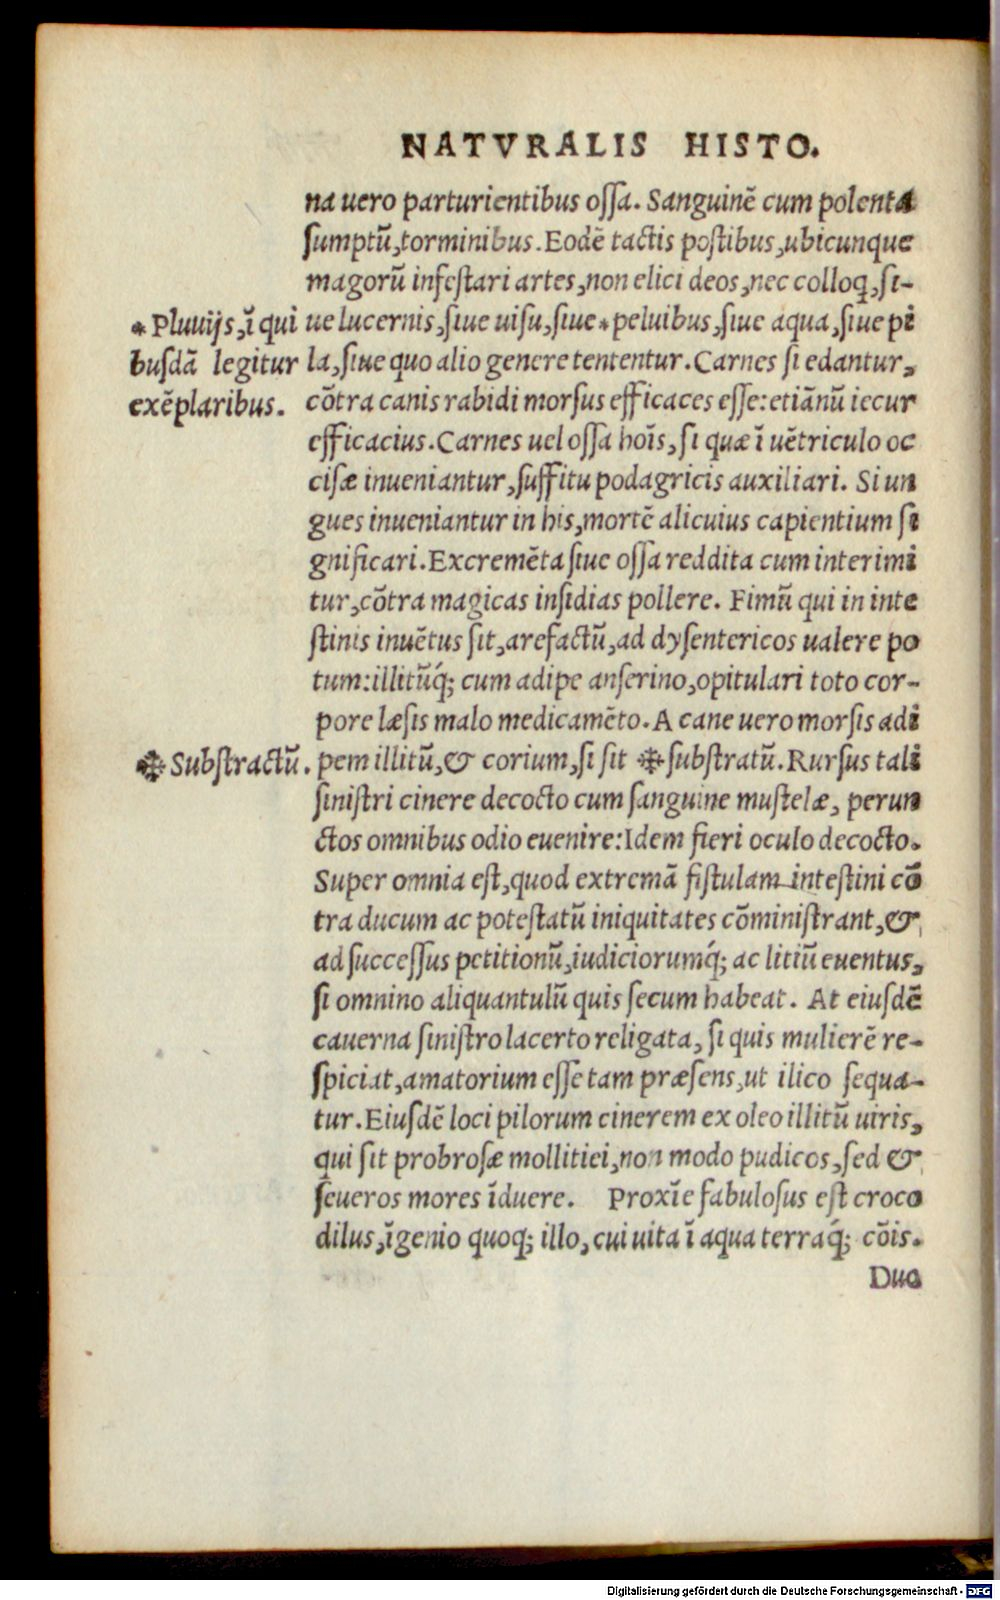 NATVRALIS HISTO.
na uero parturientibus ossa. Sanguinē cum polenta
sumptū, torminibus. Eodē tactis postibus, ubicunque
magorū infestari artes, non elici deos, nec colloq, si-
ue lucernis, siue uisu, siue * peluibus, siue aqua, siue pi
la, siue quo alio genere tententur. Carnes si edantur,
cōtra canis rabidi morsus efficaces esse: etiānū iecur
efficacius. Carnes uel ossa hoīs, si quæ ī uētriculo oc
cisæ inueniantur, suffitu podagricis auxiliari. Si un
gues inueniantur in his, mortē alicuius capientium si
gnificari. Excremēta siue ossa reddita cum interimi
tur, cōtra magicas insidias pollere. Fimū qui in inte
stinis inuētus sit, arefactū, ad dysentericos ualere po
tum: illitūq́; cum adipe anserino, opitulari toto cor-
pore læsis malo medicamēto. A cane uero morsis adi
pem illitū, & corium, si sit ✠ substratū. Rursus tali
sinistri cinere decocto cum sanguine mustelæ, perun
ctos omnibus odio euenire: Idem fieri oculo decocto.
Super omnia est, quod extremā fistulam intestini cō
tra ducum ac potestatū iniquitates cōministrant, &
ad successus petitionū, iudiciorumq́; ac litiū euentus,
si omnino aliquantulū quis secum habeat. At eiusdē
cauerna sinistro lacerto religata, si quis mulierē re-
spiciat, amatorium esse tam præsens, ut ilico sequa-
tur. Eiusdē loci pilorum cinerem ex oleo illitū uiris,
qui sit probrosæ mollitiei, non modo pudicos, sed &
seueros mores īduere. Proxīe fabulosus est croco
dilus, īgenio quoq; illo, cui uita ī aqua terraq́; cōis.
Duo
* Pluuijs, ī qui
busdā legitur
exēplaribus.
✠ Substractū.
Digitalisierung gefördert durch die Deutsche Forschungsgemeinschaft - DFG